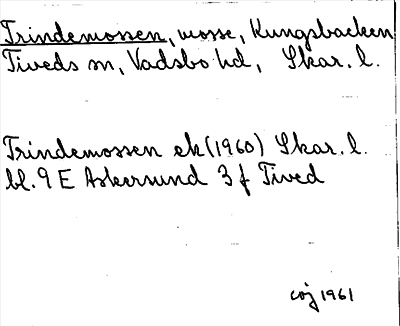 Trindemossen, mosse, Kungsbacken
Tiveds sn, Vadsbo hd, Skar. l.
Trindemossen ek (1960) Skar. l.
bl. 9 E Askersund 3 f Tived
coj 1961